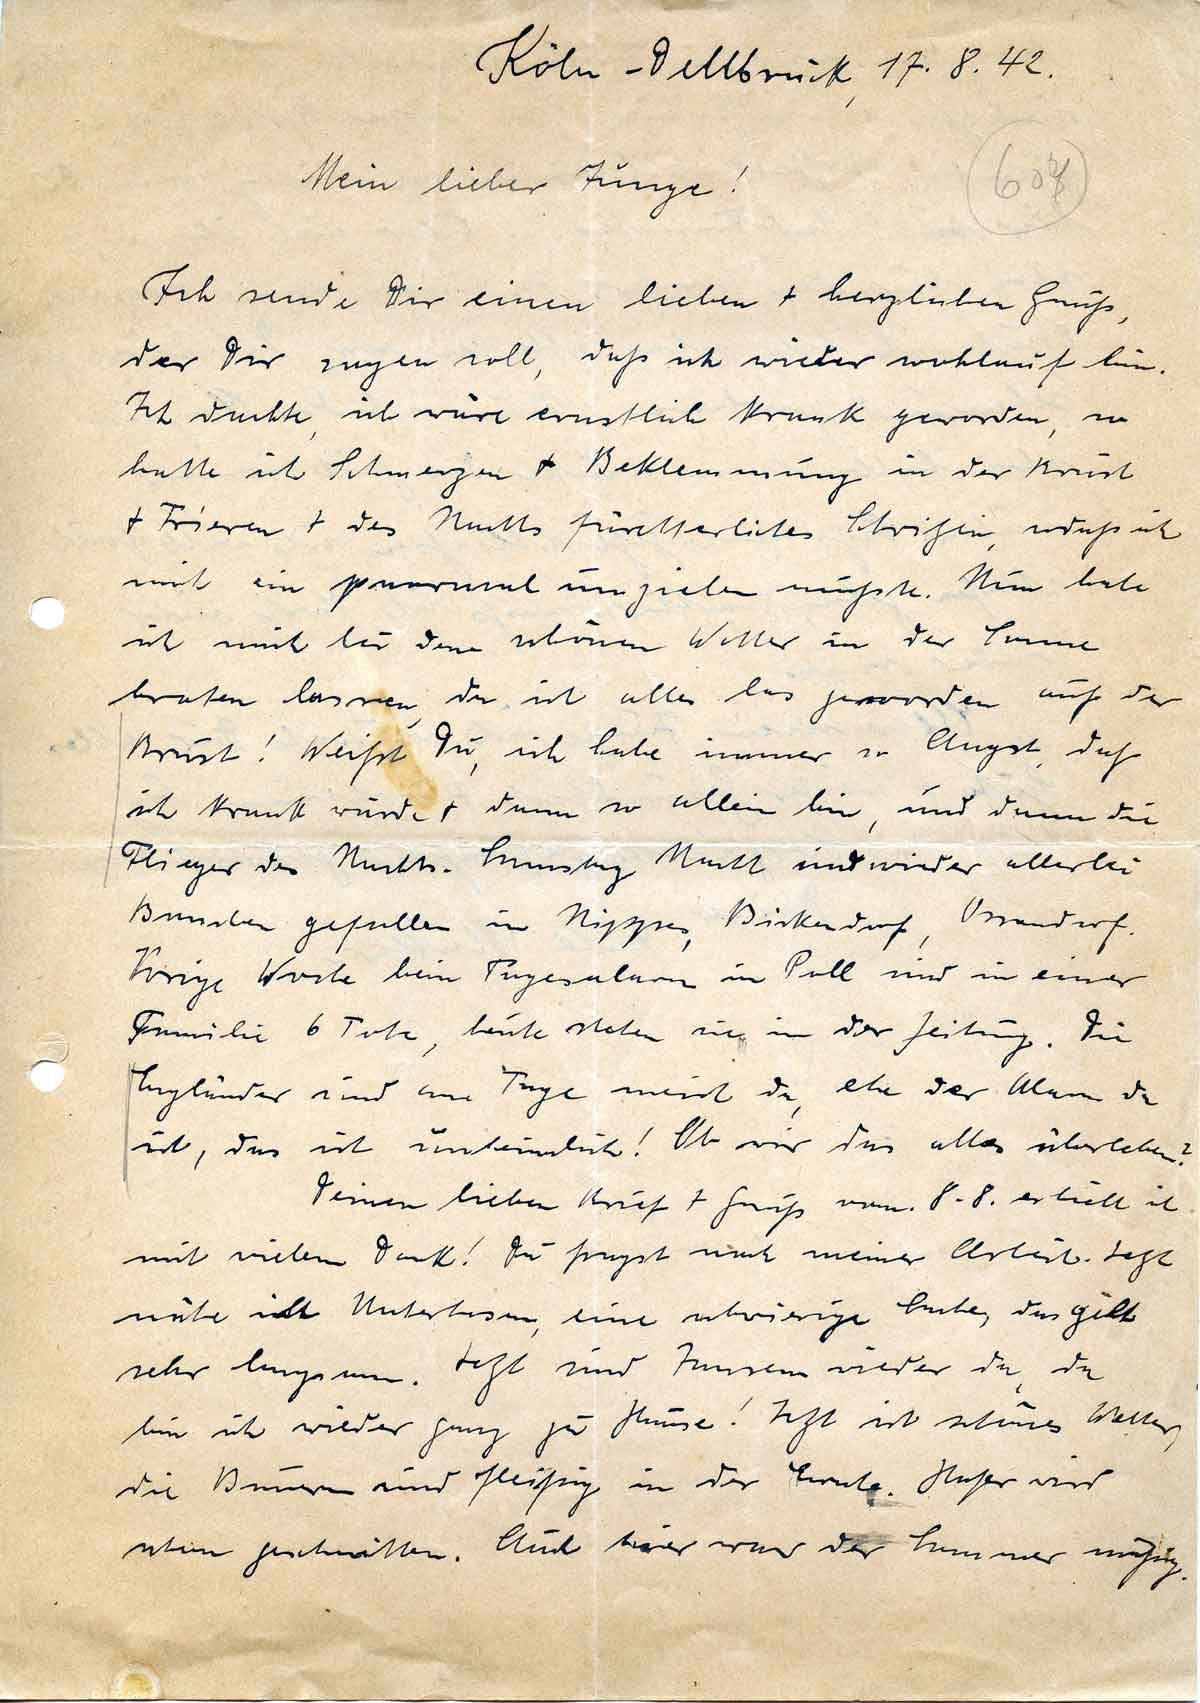 Köln-Dellbrück, 17. 8. 42.
607
Mein lieber Junge!
Ich sende Dir einen lieben + herzlichen Gruß,
der Dir sagen soll, daß ich wieder wohlauf bin.
Ich dachte, ich wäre ernstlich krank geworden, so
hatte ich Schmerzen + Beklemmung in der Brust
+ Frieren + des Nachts fürchterliches Schwitzen, sodaß ich
mich ein paarmal umziehen mußte. Nun habe
ich mich bei dem schönen Wetter in der Sonne
braten lassen, da ist alles los geworden auf der
Brust! Weißt Du, ich habe immer so Angst, daß
ich krank würde + dann so allein bin, und dann die
Flieger des Nachts. Samstag Nacht sind wieder allerlei
Bomben gefallen in Nippes, Bickendorf, Ossendorf.
Vorige Woche beim Tagesalarm in Poll sind in einer
Familie 6 Tote, heute stehen sie in der Zeitung. Die
Engländer sind am Tage meist da, ehe der Alarm da
ist, das ist unheimlich! Ob wir das alles überleben?
Deinen lieben Brief + Gruß vom 8.8. erhielt ich
mit vielem Dank! Du fragst nach meiner Arbeit. Jetzt
nähe ich Unterhosen, eine schwierige Sache, das geht
sehr langsam. Jetzt sind Jansen wieder da, da
bin ich wieder ganz zu Hause! Jetzt ist schönes Wetter,
die Bauern sind fleißig in der Ernte. Hafer wird
schon geschnitten. Auch hier war der Sommer mäßig.